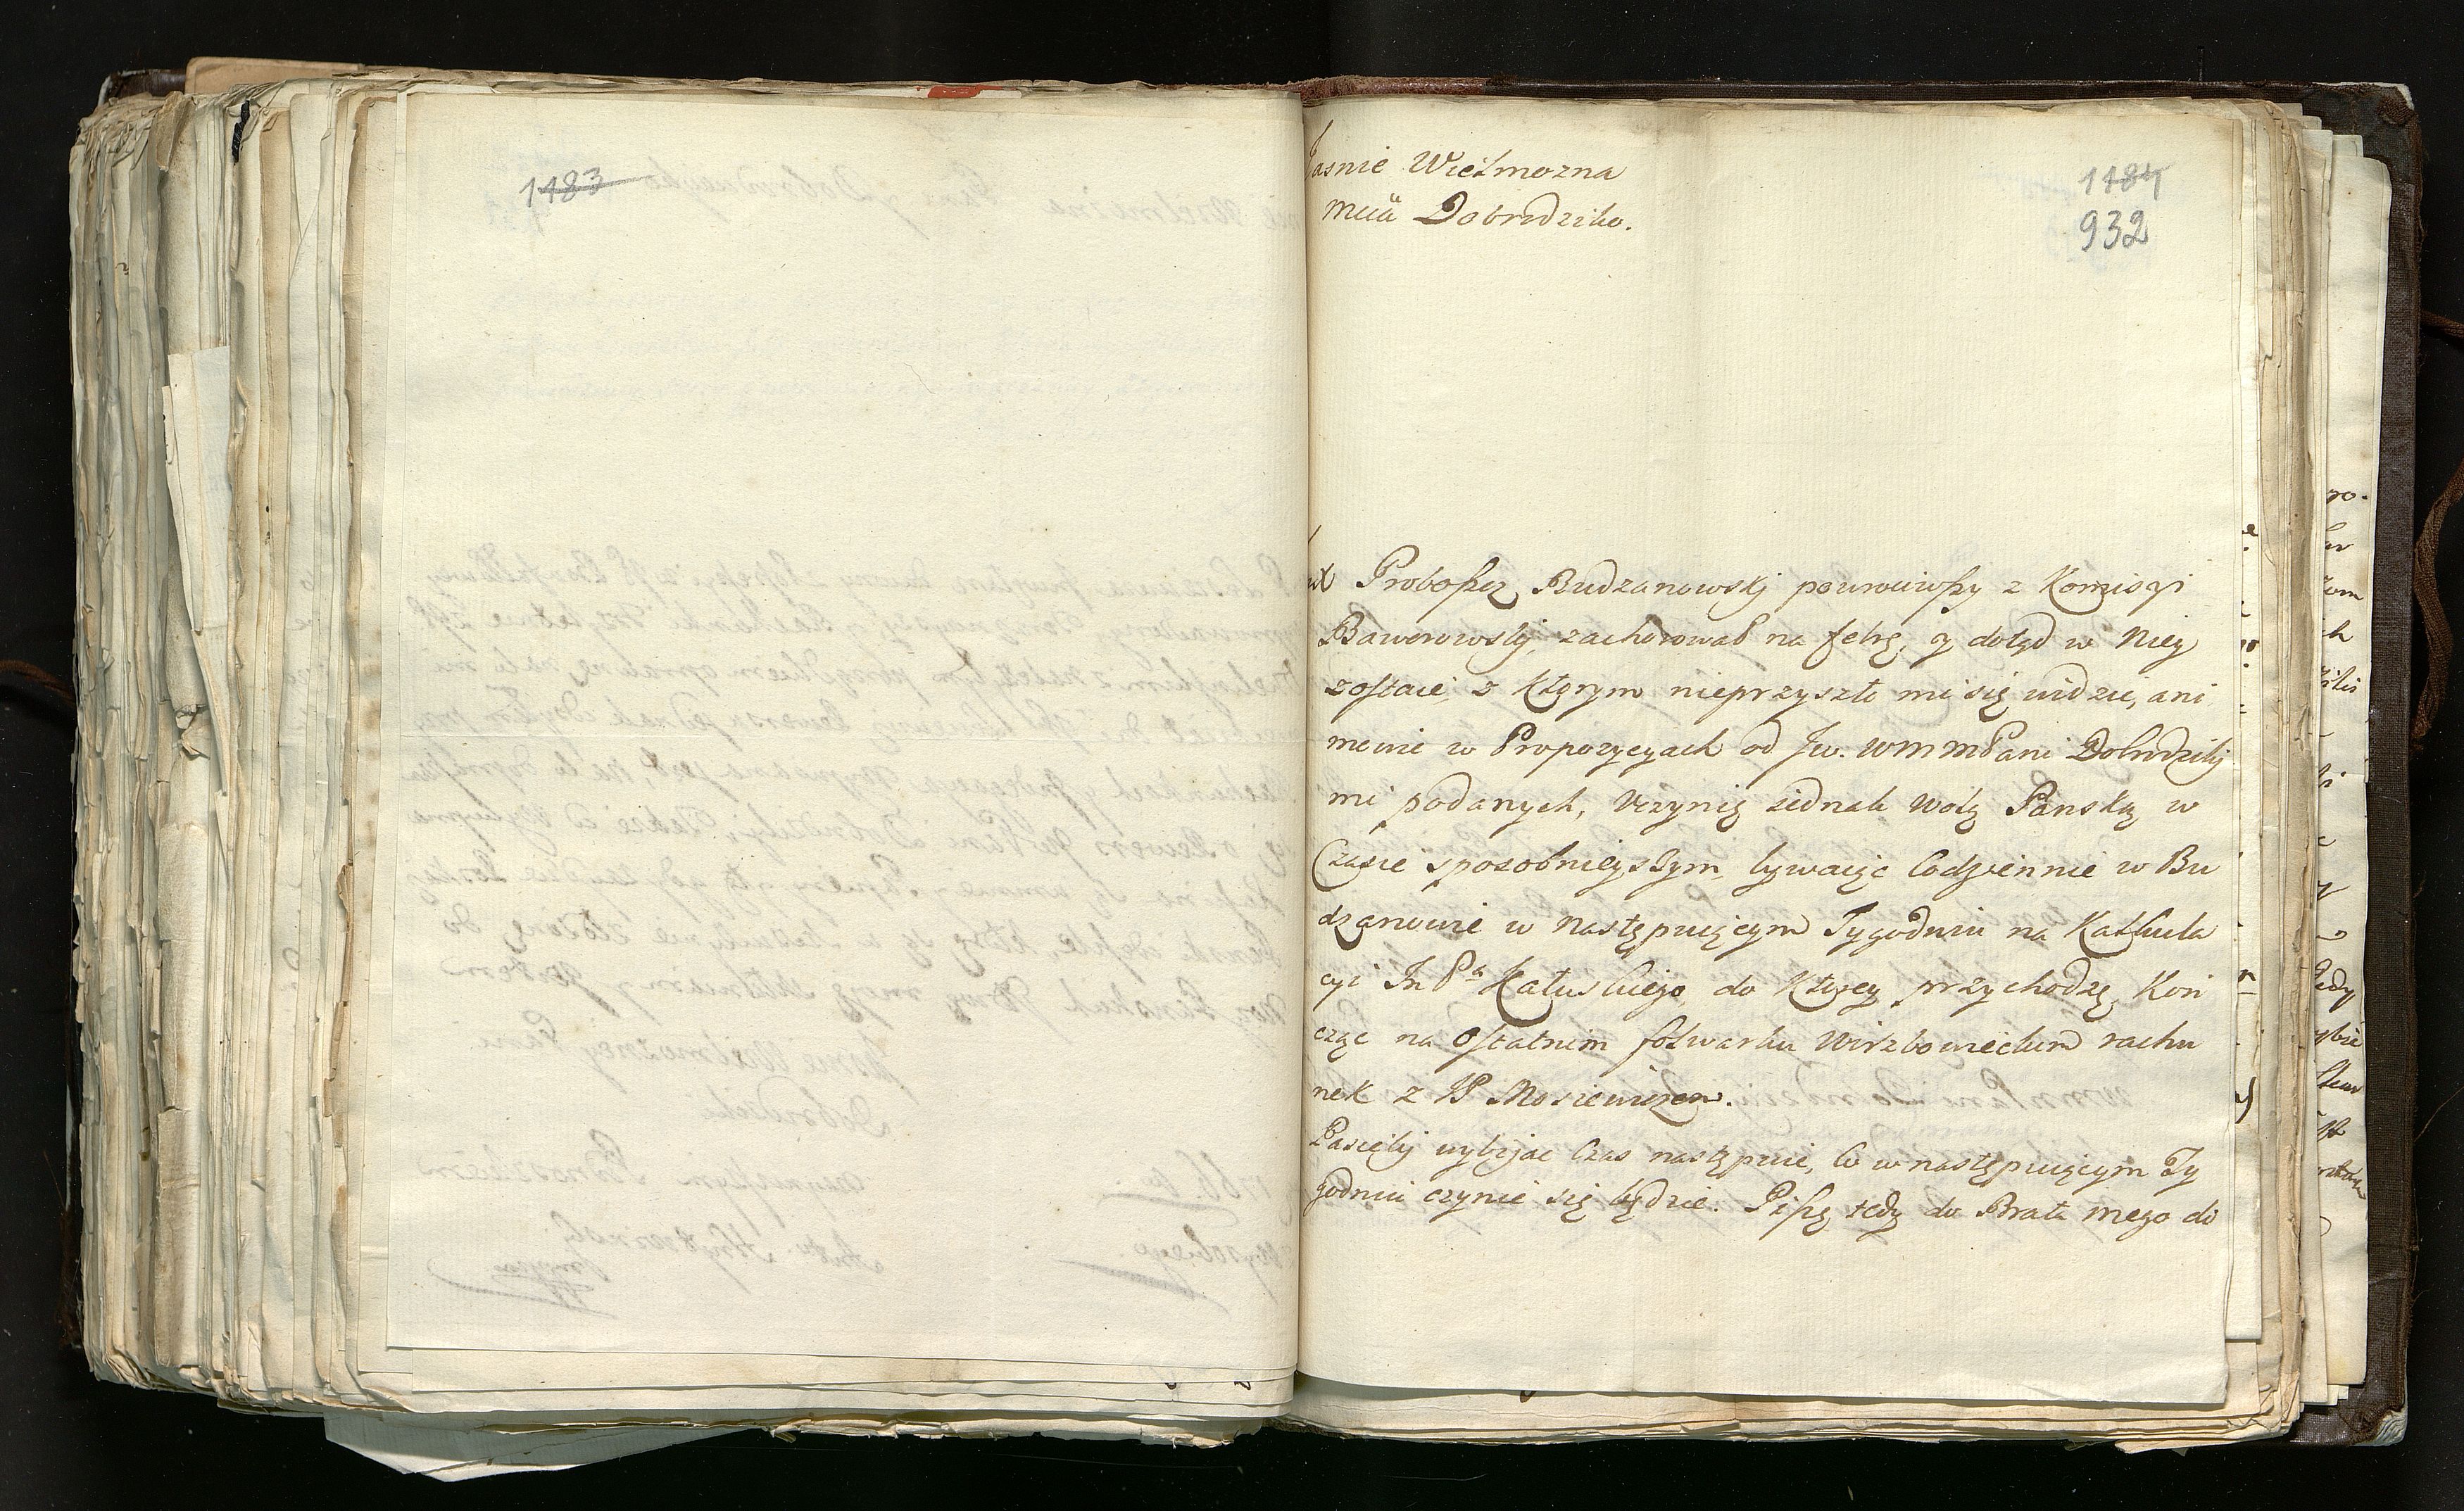 1183
Jasnie Wielmozna
Mcia Dobrodziko.
1184
932
Proboszcz Budzanowskj powrociwszy z Komiszyi
Baworowskij, zachorował na febrę, y dotąd w Niey
zostaie, z Ktorym nieprzyszło mi się widzie, ani
mowic w Propozycyach od Jw. WMMPani Dobrodzikj
mi podanych, Vczynię iednak wolą Panską w
Czasie sposobnieyszym, bywaiąc Codziennie w Bu
dzanowie w następuiącym Tygodniu na Kalkula
cyi JnPa Kałuskiego, do Ktorey przychodzę, Koń
cząc na Ostatnim folwarku Wirzboweckim rachu
nek z JP Mosiewiczem.
Pasieky wybijac Czas następuie, Co w następuiącym Ty
godniu czynic się będzie. Piszę tedy do Brata mego do